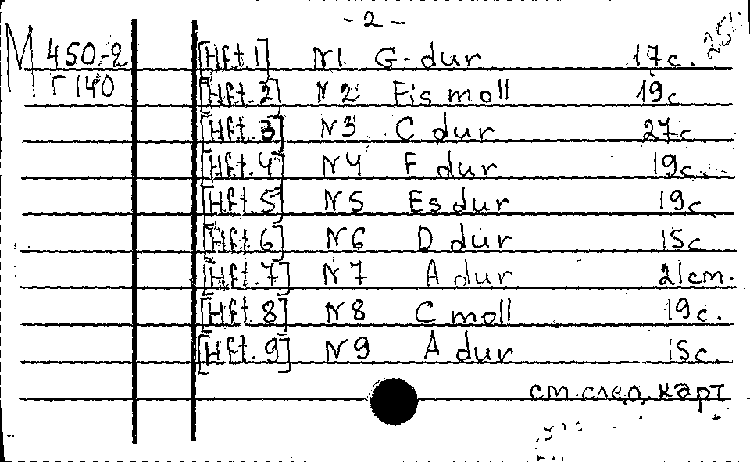 - 2 -
М 450-2 [Hft. 1] N1 G-dur 17с.
Г 140 [Hft. 2] N2 Fis moll 19с
[Hft. 3] N3 C dur 27с
[Hft. 4] N4 F dur 19с.
[Hft. 5] N5 Es dur 19с
[Hft. 6] N6 D dur 15с
[Hft. 7] N7 A dur 21cm.
[Hft. 8] N8 C moll 19с.
[Hft. 9] N9 A dur 15с.
см. след. карт